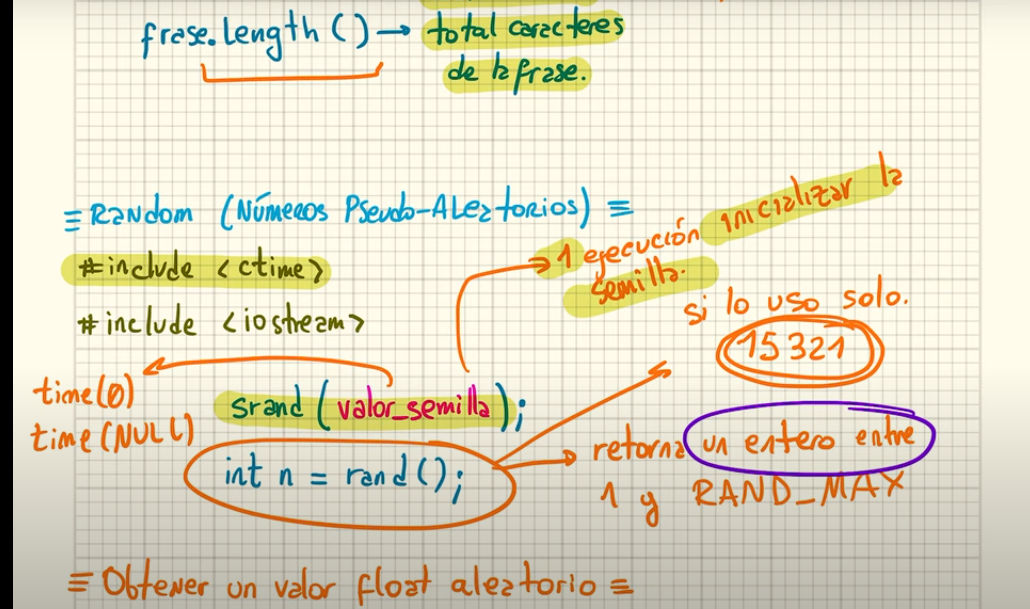 frase.length() → total caracteres
de la frase.
≡ Random (Números Pseudo-Aleatorios) ≡
#include <ctime>
#include <iostream>
1 ejecución inicializar la
semilla.
si lo uso solo.
15321
time(0)
time(NULL)
srand(valor_semilla);
int n = rand();
retorna un entero entre
1 y RAND_MAX
≡ Obtener un valor float aleatorio ≡